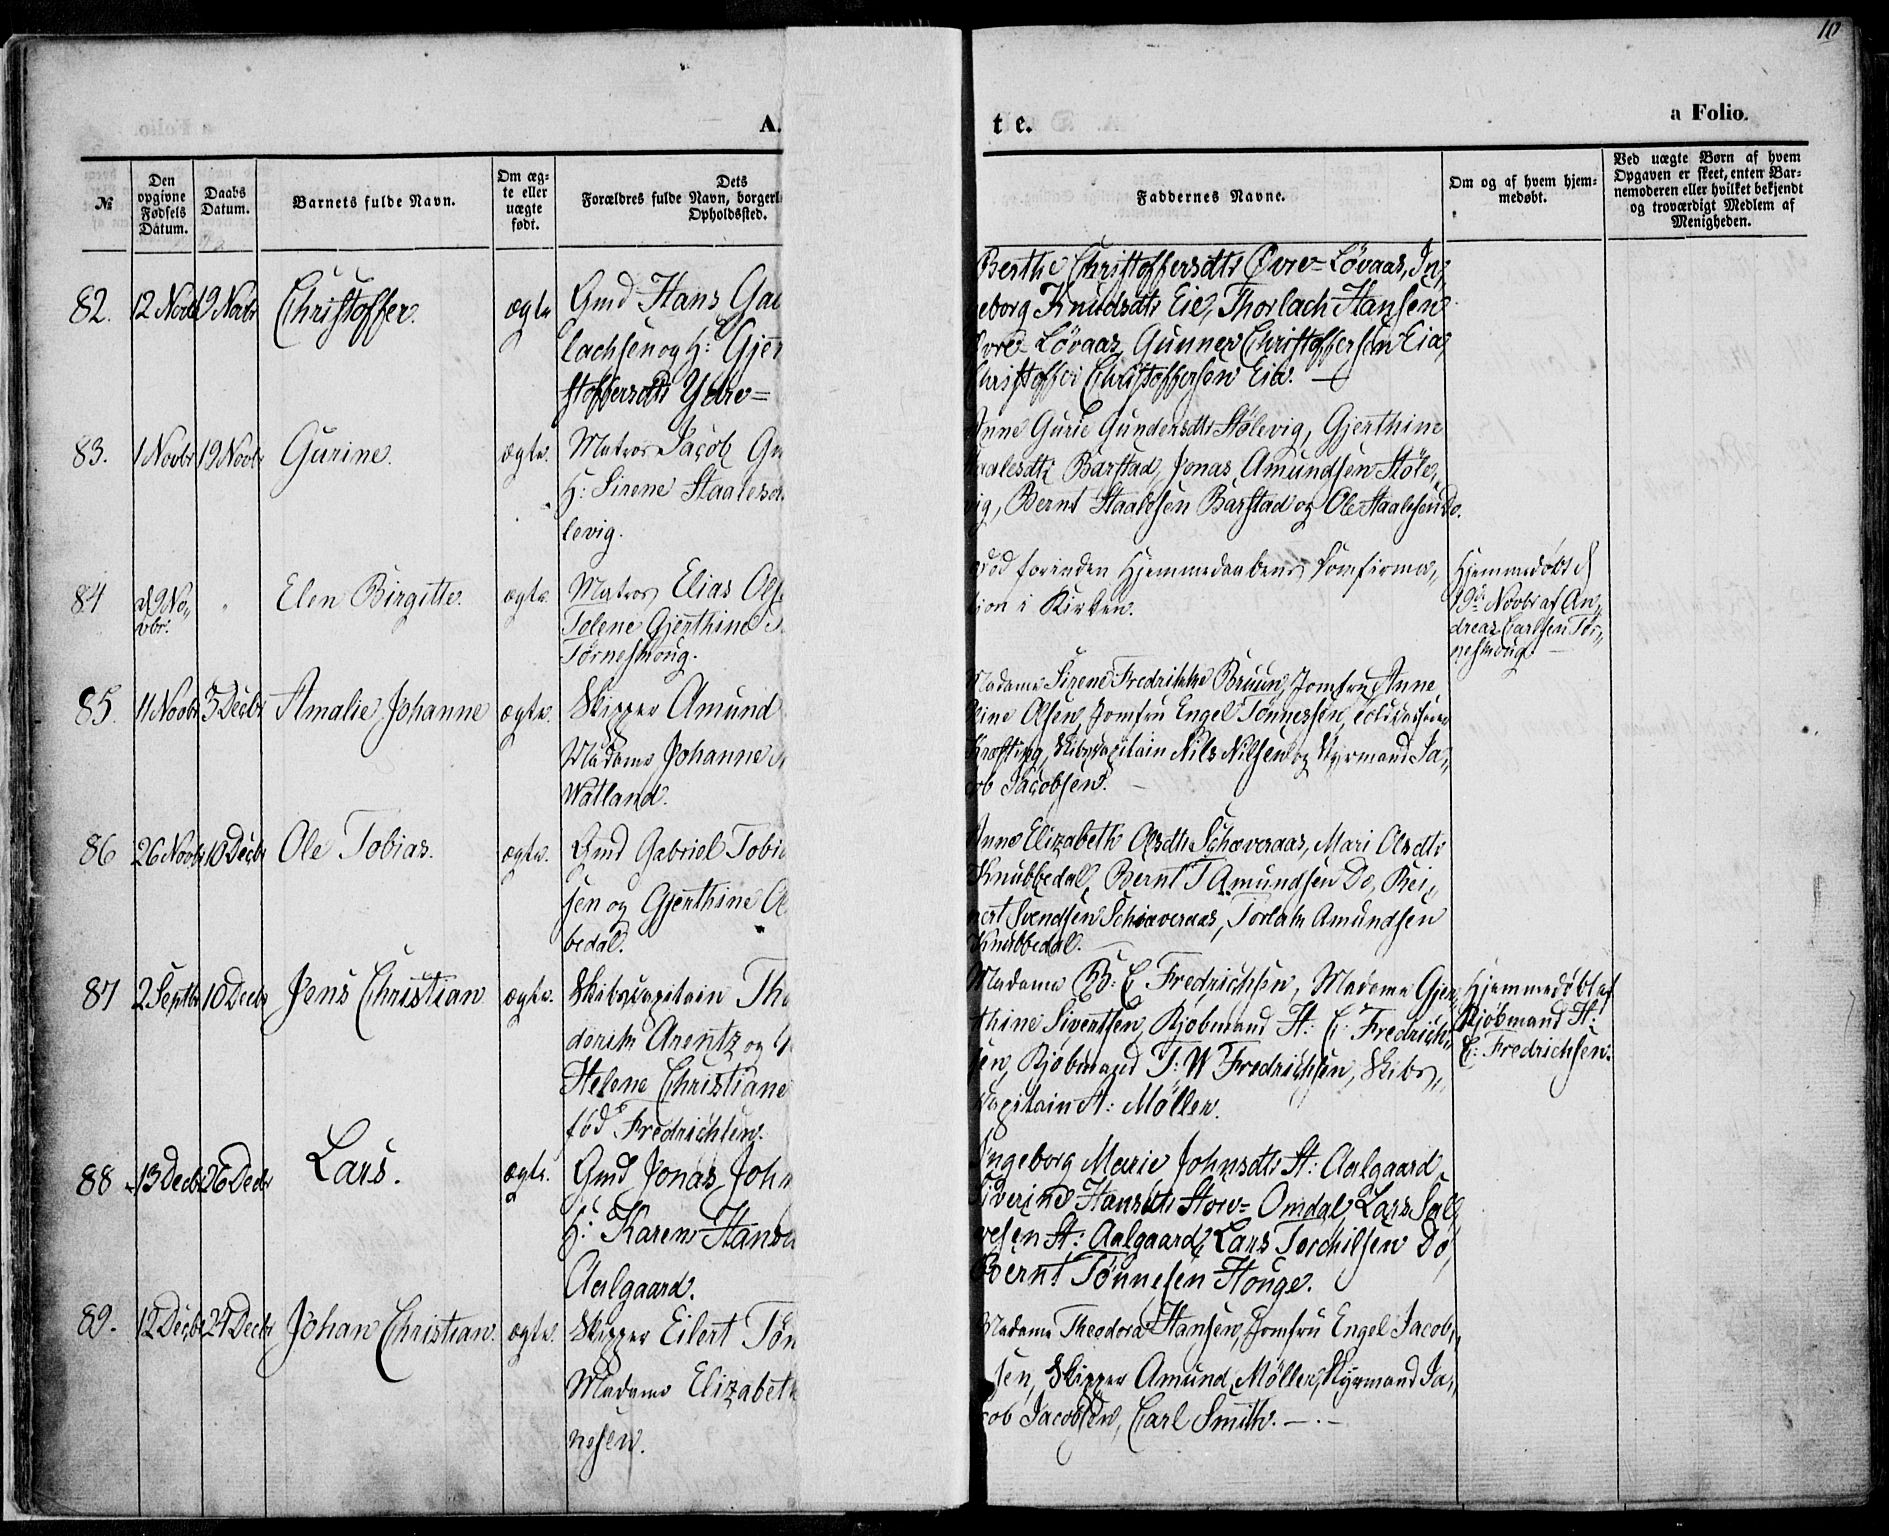 10
A.
t e.
a Folio.
№
Den opgivne Fødsels Datum.
Daabs Datum.
Barnets fulde Navn.
Om ægte eller uægte født.
Dets
Forældres fulde Navn, borgerl
Opholdssted.
Faddernes Navne.
Om og af hvem hjemmedøbt.
Ved uægte Børn af hvem
Opgaven er skeet, enten Bar-
nemoderen eller hvilket bekjendt
og troværdigt Medlem af
Menigheden.
82. 12 Novb 19 Novbr Christoffer. ægte
Gmd Hans Ga
lachsen og H: Gjer
stoffersdtr Ydre=
Berthe Christoffersdtr Øvre=Løvaas, In,
geborg Knudsdtr Eie, Thorlach Hansen
Øvre Løvaas, Gunner Christoffersen Eie,
Christoffer Christoffersen Eie.
83. 1 Novbr 19 Novbr Gurine. ægte.
Matros Jacob Gu
H: Sirene Staalesd
levig.
Anne Gurie Gundersdtr Stølevig, Gjerthine
Staalesdtr Barstad, Jonas Amundsen Støle,,
vig, Bernt Staalesen Barstad og Ole Staalesen Do.
84 d 9 No,,
vbr. " Elen Birgitte. ægte
Matros Elias Ols
Tolene Gjerthine
Tørnesmoug.
død forinden Hjemmedaabens Comfirma,,
tion i Kirken.
Hjemmedøbt d
19de Novbr af An,,
dreas Carlsen Tør,,
nesmoug.
85. 11 Novbr 3 Decbr Amalie Johanne ægte.
Skipper Amund
Madame Johanne
Watland.
Madame Sirene Fredrikke Bruun, Jomfru Anne
Oline Olsen, Jomfru Engel Tønnessen,
Krofting, Skibscapitain Nils Nilsen og Styrmand Ja,,
cob Jacobsen.
86 26 Novbr 10 Decbr Ole Tobias. ægte.
Gmd Gabriel Tobi
sen og Gjerthine A
bedal.
Anne Elizabeth Olsdtr Schæveraas, Mari Olsdtr
Knubbedal, Bernt T Amundsen Do, Rei,,
nert Svendsen Schæveraas, Torlak Amundsen
Knubbedal.
87 2 Septbr 10 Decbr Jens Christian ægte.
Skibscapitain Th
derik Arentz og
Helene Christiane
fød Fredrichsen.
Madame B: C Fredrichsen, Madame Gjer,,
thine Sivertsen, Kjøbmand H: C: Fredrich,,
sen, Kjøbmand T: W Fredrichsen, Skibs,,
capitain A: Møller.
Hjemmedøbt af
Kjøbmand H:
C: Fredrichsen.
88 13 Decbr 26 Decbr Lars. ægte.
Gmd Jonas John
H: Karen Hansd
Aalgaard.
Ingeborg Marie Johnsdtr St: Aalgaard,
Siverine Hansdtr Store=Omdal, Lars Sal,,
vesen St: Aalgaard, Lars Torchilsen Do,
Bernt Tønnesen Houge.
89. 12 Decbr 27 Decbr Johan Christian. ægte.
Skipper Eilert Tøn
Madame Elizabeth
nesen.
Madame Theodora Hansen, Jomfru Engel Jacob,,
sen, Skipper Amund Møller, Styrmand Ja,,
cob Jacobsen, Carl Smith.